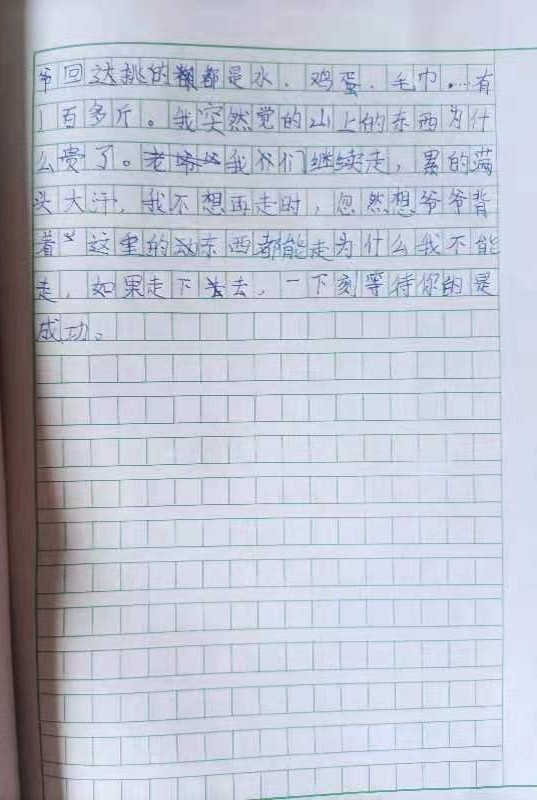 爷回达挑的都是水、鸡蛋、毛巾…有
1百多斤。我突然觉的山上的东西为什
么贵了。我们继续走，累的满
头大汗，我不想再走时，忽然想爷爷背
着 这里的东西都能走为什么我不能
走，如果走下去，一下刻等待你的是
成功。